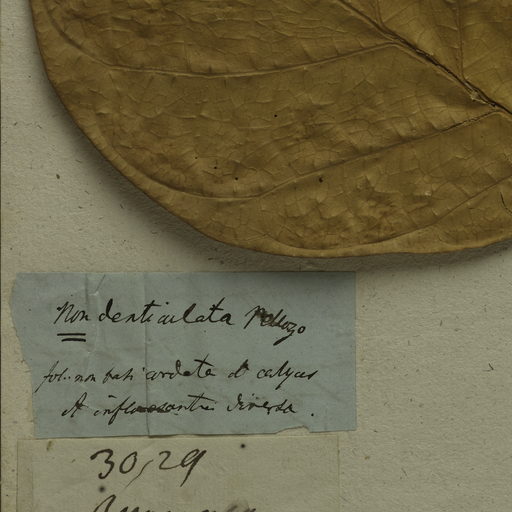 Non denticulata Vellozo
fol. non basi cordata et calyces
et inflorescentia diversa.
30,29